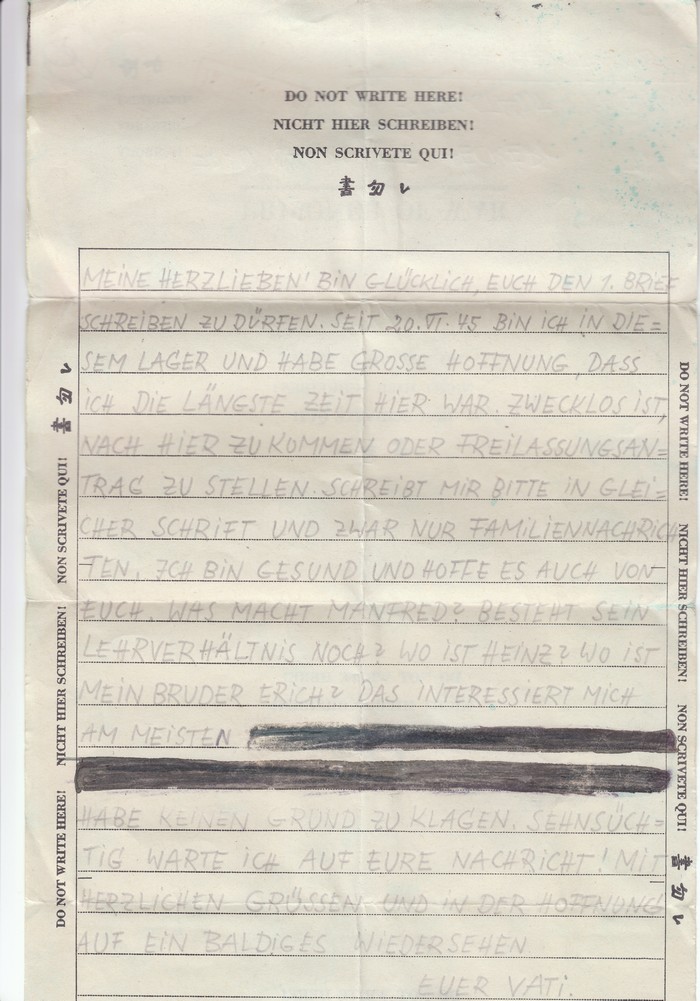 DO NOT WRITE HERE!
NICHT HIER SCHREIBEN!
NON SCRIVETE QUI!
書勿レ
MEINE HERZLIEBEN! BIN GLÜCKLICH, EUCH DEN 1. BRIEF
SCHREIBEN ZU DÜRFEN. SEIT 20.VI.45 BIN ICH IN DIE=
SEM LAGER UND HABE GROSSE HOFFNUNG, DASS
ICH DIE LÄNGSTE ZEIT HIER WAR. ZWECKLOS IST,
NACH HIER ZU KOMMEN ODER FREILASSUNGSAN=
TRAG ZU STELLEN. SCHREIBT MIR BITTE IN GLEI=
CHER SCHRIFT UND ZWAR NUR FAMILIENNACHRICH
TEN. ICH BIN GESUND UND HOFFE ES AUCH VON
EUCH. WAS MACHT MANFRED? BESTEHT SEIN
LEHRVERHÄLTNIS NOCH? WO IST HEINZ? WO IST
MEIN BRUDER ERICH? DAS INTERESSIERT MICH
AM MEISTEN
HABE KEINEN GRUND ZU KLAGEN. SEHNSÜCH=
TIG WARTE ICH AUF EURE NACHRICHT! MIT
HERZLICHEN GRÜSSEN UND IN DER HOFFNUNG
AUF EIN BALDIGES WIEDERSEHEN
EUER VATI.
DO NOT WRITE HERE! NICHT HIER SCHREIBEN! NON SCRIVETE QUI! 書勿レ
DO NOT WRITE HERE! NICHT HIER SCHREIBEN! NON SCRIVETE QUI! 書勿レ